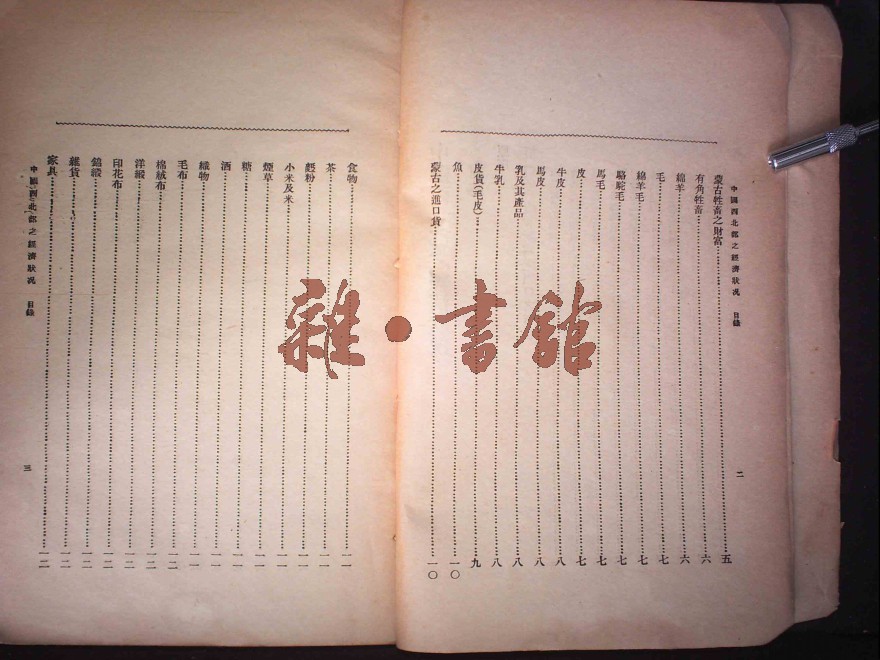 中國西北部之經濟狀況 目錄
二
蒙古牲畜之財富五
有角牲畜六
綿羊六
毛七
綿羊毛七
駱駝毛七
馬毛七
皮七
牛皮八
馬皮八
乳及其產品八
牛乳八
皮貨(毛皮)九
魚一〇
蒙古之進口貨一〇
食物一一
茶一一
麪粉一一
小米及米一一
煙草一一
糖一一
酒一一
織物一一
毛布一二
棉絨布一二
洋緞一二
印花布一二
錦緞一二
雜貨一二
家具一二
中國西北部之經濟狀況 目錄
三
雜·書館